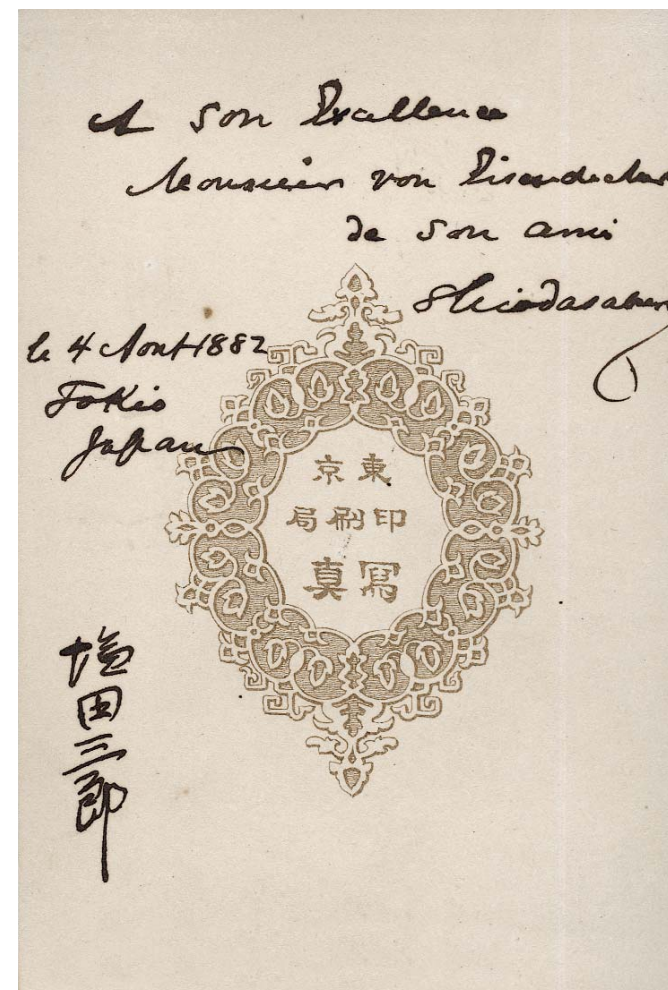 A son Excellence
Monsieur von Eisendecher
de son ami
Shiodasaburo
le 4 Aout 1882
Tokio
Japan
東京
印刷局
寫真
塩田三郎